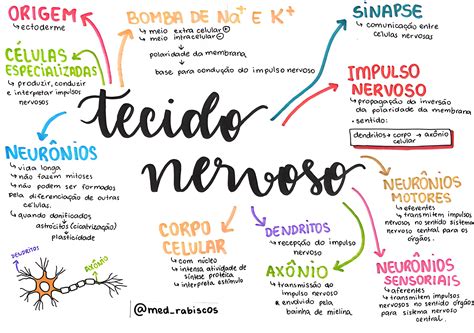 ORIGEM
↳ ectoderme
CÉLULAS
ESPECIALIZADAS
↳ produzir, conduzir
e interpretar impulsos
nervosos
NEURÔNIOS
↳ vida longa
↳ não fazem mitoses
↳ não podem ser formados
pela diferenciação de outras
células.
↳ quando danificados
astrócitos (cicatrização)
plasticidade
DENDRITOS
AXÔNIO
BOMBA DE Na⁺ E K⁺
↳ meio extra celular ⊕
↳ meio intracelular ⊖
polaridade da membrana
base para condução do impulso nervoso
tecido
nervoso
SINAPSE
↳ comunicação entre
células nervosas
IMPULSO
NERVOSO
↳ propagação da inversão
da polaridade da membrana
• sentido:
dendritos → corpo → axônio
celular
CORPO
CELULAR
↳ com núcleo
↳ intensa atividade de
síntese proteica
↳ integração
DENDRITOS
↳ recepção do impulso
nervoso
AXÔNIO
↳ transmissão do
impulso nervoso
↳ envolvido pela
bainha de mielina.
NEURÔNIOS
MOTORES
↳ eferentes
↳ transmitem impulsos
nervosos no sentido sistema
nervoso central para os
órgãos.
NEURÔNIOS
SENSORIAIS
↳ aferentes
↳ transmitem impulsos
nervosos no sentido órgãos
para sistema nervoso
central.
@med_rabiscos